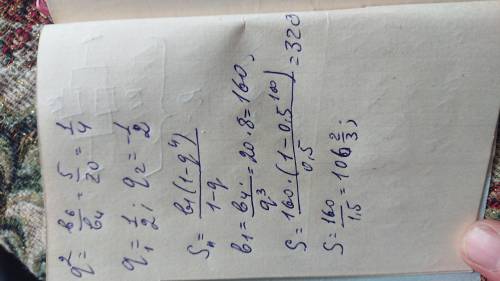 q² = b₆/b₄ = 5/20 = 1/4
q₁ = 1/2; q₂ = -1/2
Sₙ = b₁(1-qⁿ)/1-q
b₁ = b₄/q³ = 20·8 = 160;
S = 160·(1-0,5¹⁰⁰)/0,5 = 320
S = 160/1,5 = 106 2/3;